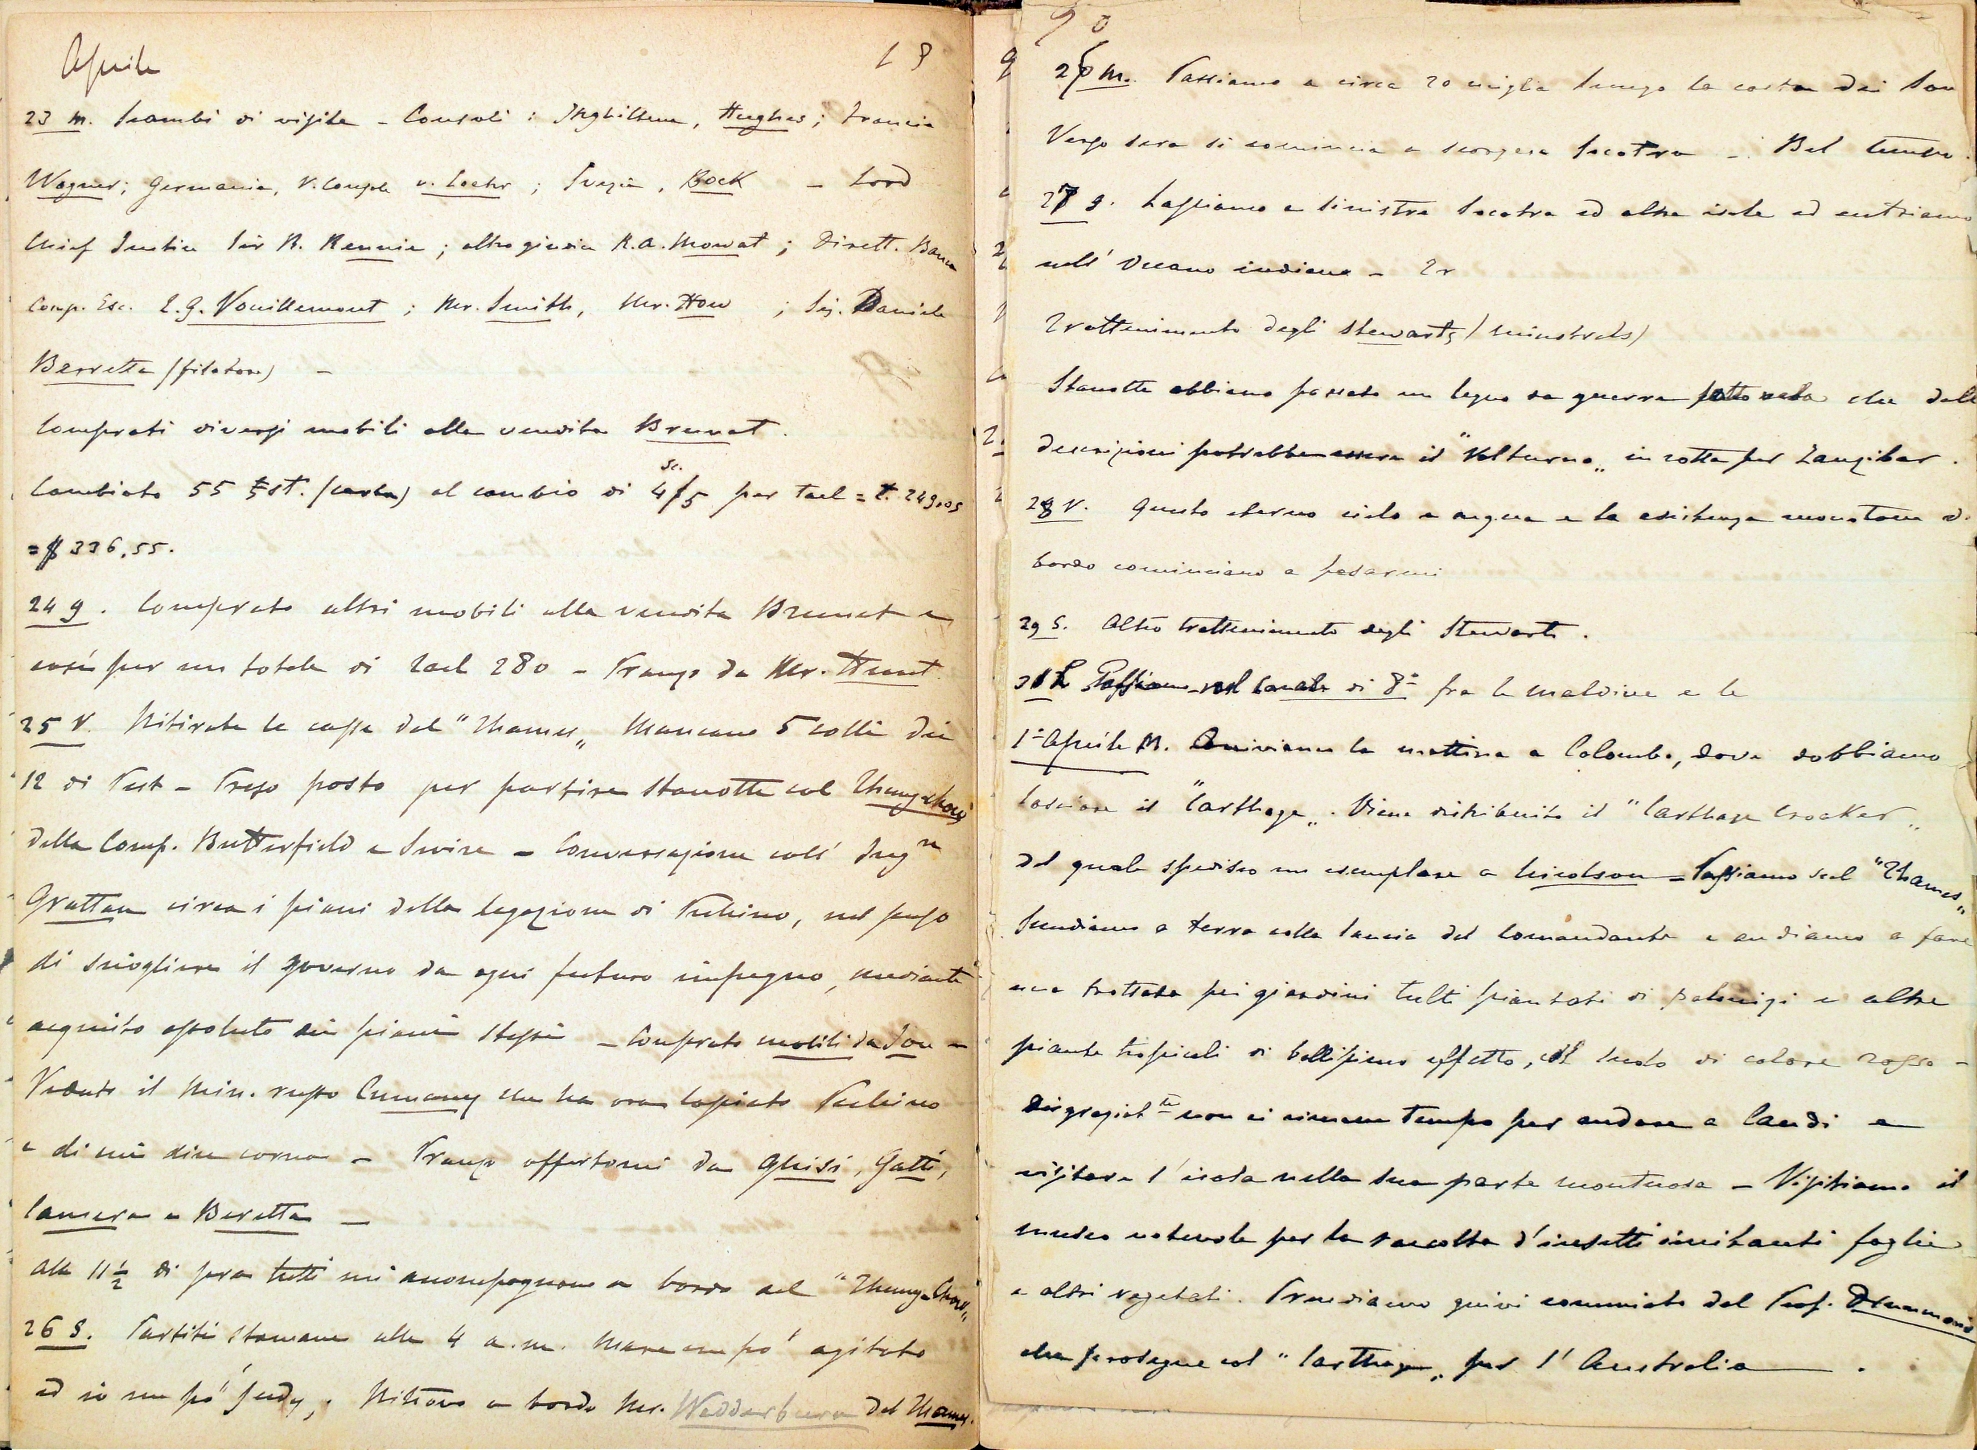 Aprile 18
23 M. Scambi di visite – Consoli: Inghilterra, Hughes; Francia
Wagner; Germania, V. Console v. Loehr; Svezia, Bock – Lord
Chief Justice Sir R. Rennie; altro giudice R.A. Mowat; Dirett. Banca
Comp. Esc. E.G. Vouillemont; Mr. Smith, Mr. How; Sig. Daniele
Berretta (filatore) –
Comprati diversi mobili alla vendita Brunat.
Cambiato 55 £st. (carta) al cambio di 4/5 per tael = t. 249,05
= $ 336,55.
24 g. Comprato altri mobili alla vendita Brunat e
così per un totale di tael 280 – Pranzo da Mr. Hunt.
25 V. Ritirate le casse dal "Thames" Mancano 5 colli dei
12 di Pest – Preso posto per partire stanotte col
della Comp. Butterfield e Swire – Conversazione coll' Ing.re
Grattan circa i piani della legazione di Pechino, nel senso
di sciogliere il governo da ogni futuro impegno, mediante
acquisto assoluto dei piani stessi – Comprato mobili da Jou –
Veduto il Min. russo Cumany che ha ora lasciato Pechino
e di cui dice corna – Pranzo offertomi da Ghisi, Gatti,
Camera e Beretta –
Alle 11½ di sera tutti mi accompagnano a bordo del
26 S. Partiti stamane alle 4 a.m. Mare un po' agitato
ed io un po' "seedy". Ritrovo a bordo Mr. Wedderburn del Thames.
26 M. Passiamo a circa 20 miglia lungo la costa dei Som
Verso sera si comincia a scorgere Socotra – Bel tempo.
27 g. Lasciamo a sinistra Socotra ed altre isole ed entriamo
nell' Oceano indiano – Tr
Trattenimento degli Stewarts (minstrels)
Stanotte abbiamo passato un legno da guerra sotto vela che dalle
descrizioni potrebbe essere il "Volturno" in rotta per Zanzibar.
28 V. Questo eterno cielo e acqua e la esistenza monotona di
bordo cominciano a pesarmi
29 S. Altro trattenimento degli Stewarts.
31 L Passiamo nel canale di 8° fra le Maldive e le
1° Aprile M. Arriviamo la mattina a Colombo, dove dobbiamo
lasciare il "Carthage". Viene distribuito il "Carthage Cracker"
del quale spedisco un esemplare a Nicolson – Passiamo sul "Thames"
Scendiamo a terra colla lancia del Comandante e andiamo a fare
una trottata pei giardini tutti piantati di palmizi e altre
piante tropicali di bellissimo effetto, col suolo di colore rosso –
Disgraziat.te non ci rimane tempo per andare a Candi e
visitare l'isola nella sua parte montuosa – Visitiamo il
museo notevole per la raccolta d'insetti imitanti foglie
e altri vegetali. Prendiamo quivi commiato dal Prof. Drummond
che prosegue col "Carthage" per l'Australia.